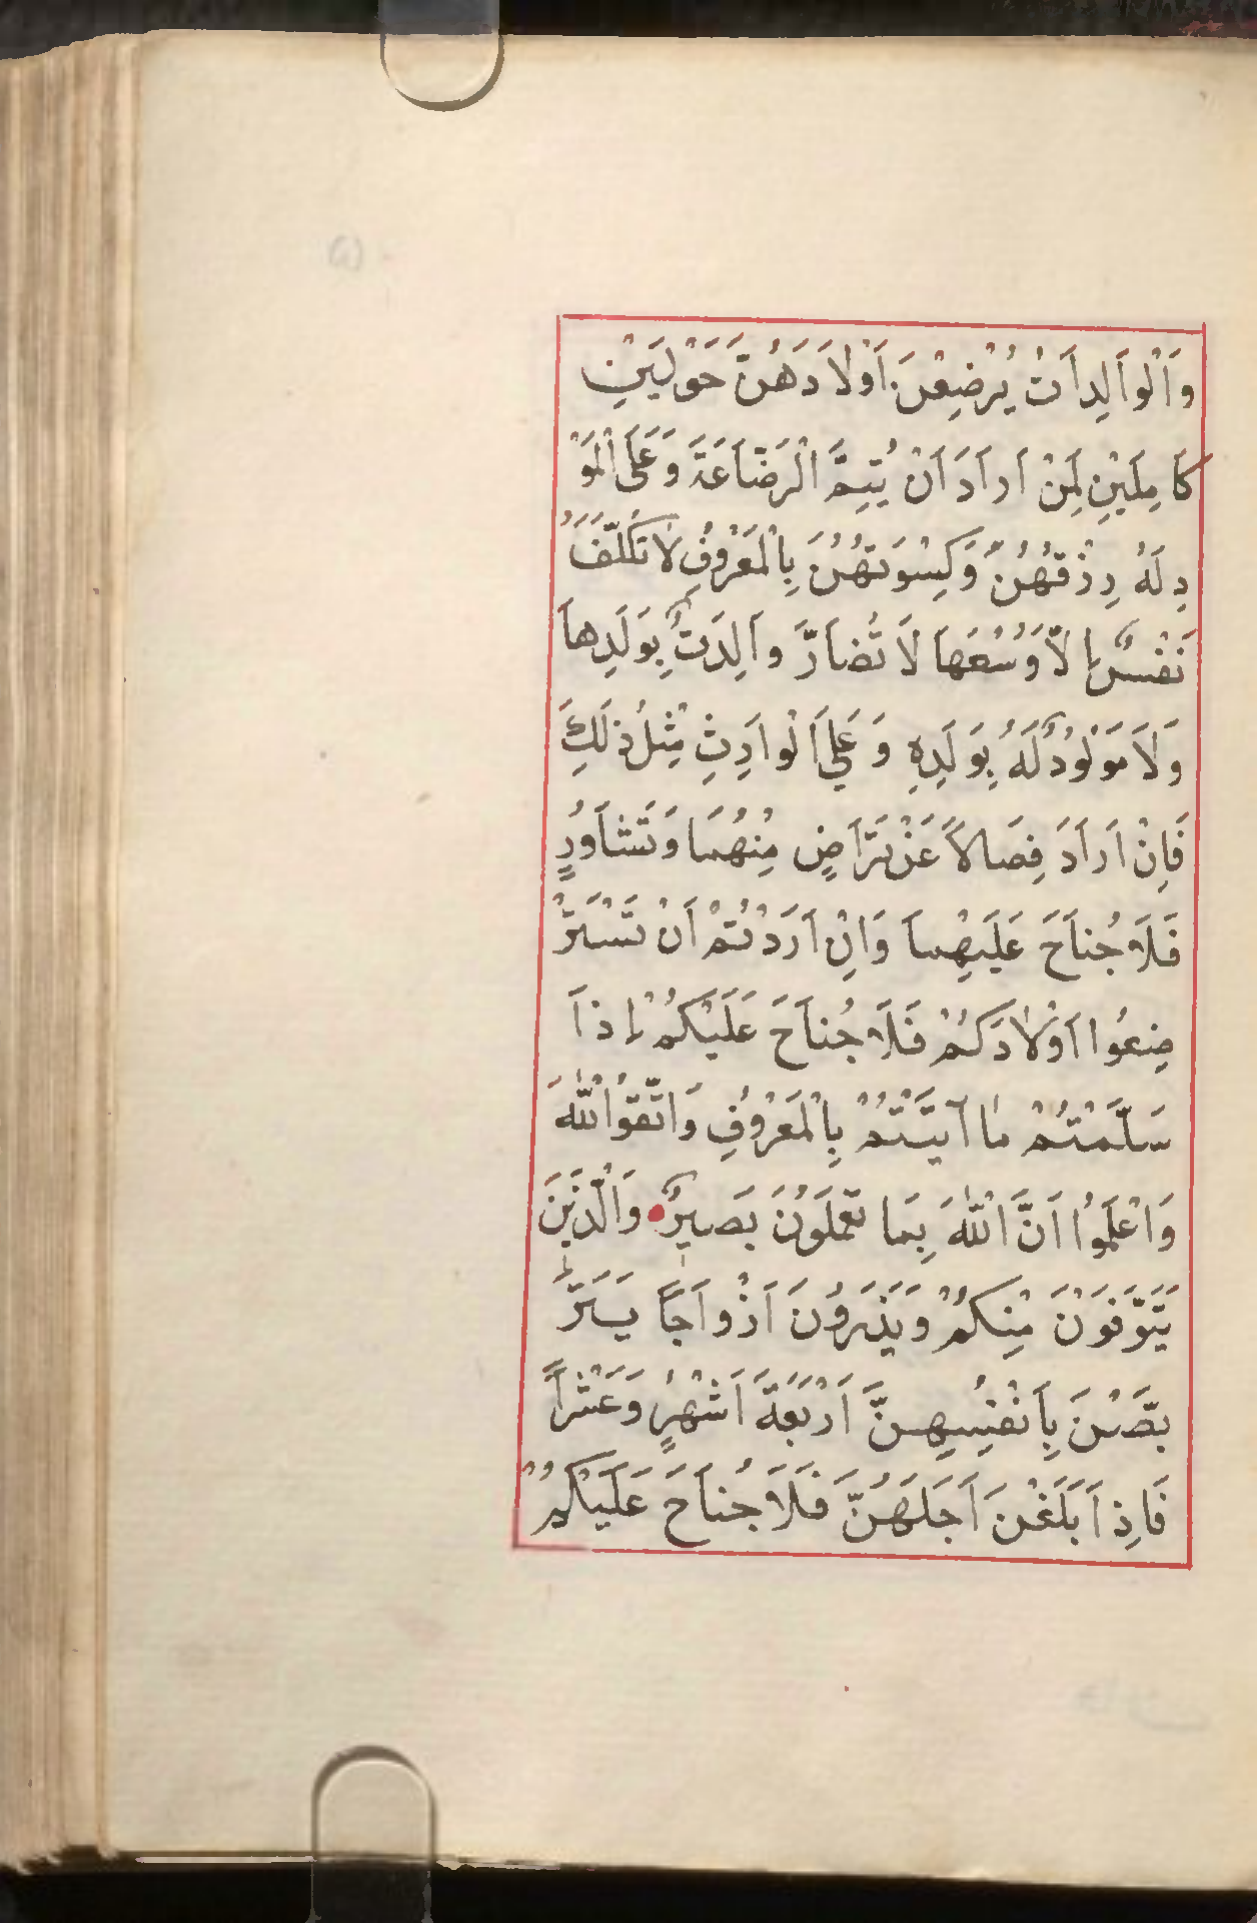 وَاَلْوَاَلِدَاَتُ يُرْضِعْنَ اَوْلَادَهُنَّ حَوْلَيْنِ
كَامِلَيْنِ لِمَنْ اَراَدَ اَنْ يُتِمَّ الْرَضَاَعَةَ وَعَلَى الْمَوْ
دِلَهُ رِزْقُهُنَّ وَكِسْوَتُهُنَ بِالْمَعْرُوفِ لَا تَكَلَّفَُ
نَفْسٌ اِلَّا وَسُعَهَا لَا تُضاَرَّ واَلِدَتٌ بِوَلَدِهاَ
وَلَا مَوْلُوُدٌ لَهُ بِوَلَدِهِ وَعَلَى اَلْواَرِثِ مِثْلُ ذٰلَكَِ
فَاِنْ اَراَدَ فِصَالاً عَنْ تَرَاَضٍ مِنْهُمَا وَتَشَاَوُرٍ
فَلَا جُناَحَ عَلَيْهِماَ وَاِنْ اَرَدْتُمْ اَنْ تَسْتَرْ
ضِعُوا اَوْلَادَكُمْ فَلَا جُناَحَ عَلَيْكُمْ اِذاَ
سَلَّمْتُمْ مٰا آتَيْتُمْ بِالْمَعْرُوفِ وَاتَّقُوا اللّٰهَ
وَاعْلَمُوا اَنَّ اللّٰهَ بِمَا تَعْمَلَوُنَ بَصيرٌ وَالَّذَينَ
يَتَوَّفَوْنَ مِنْكُمْ وَيَذَرَوُنَ اَزْواَجاً يَتَرَ
بَّصْنَ بِاَنْفُسِهِنَّ اَرْبَعَةَ اَشْهُرٍ وَعَشْراً
فَاِذاَ بَلَغْنَ اَجَلَهُنَّ فَلَا جُناَحَ عَلَيْكُمْ